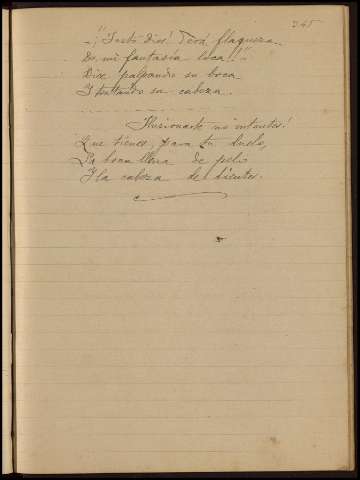 345
-"¡Justo Dios! Será flaqueza
De mi fantasía loca!!"-
Dice palpando su boca
I tentando su cabeza.
Ilusionarte no intentes!
Que tienes, para tu duelo,
La boca llena de pelo
I la cabeza de dientes.